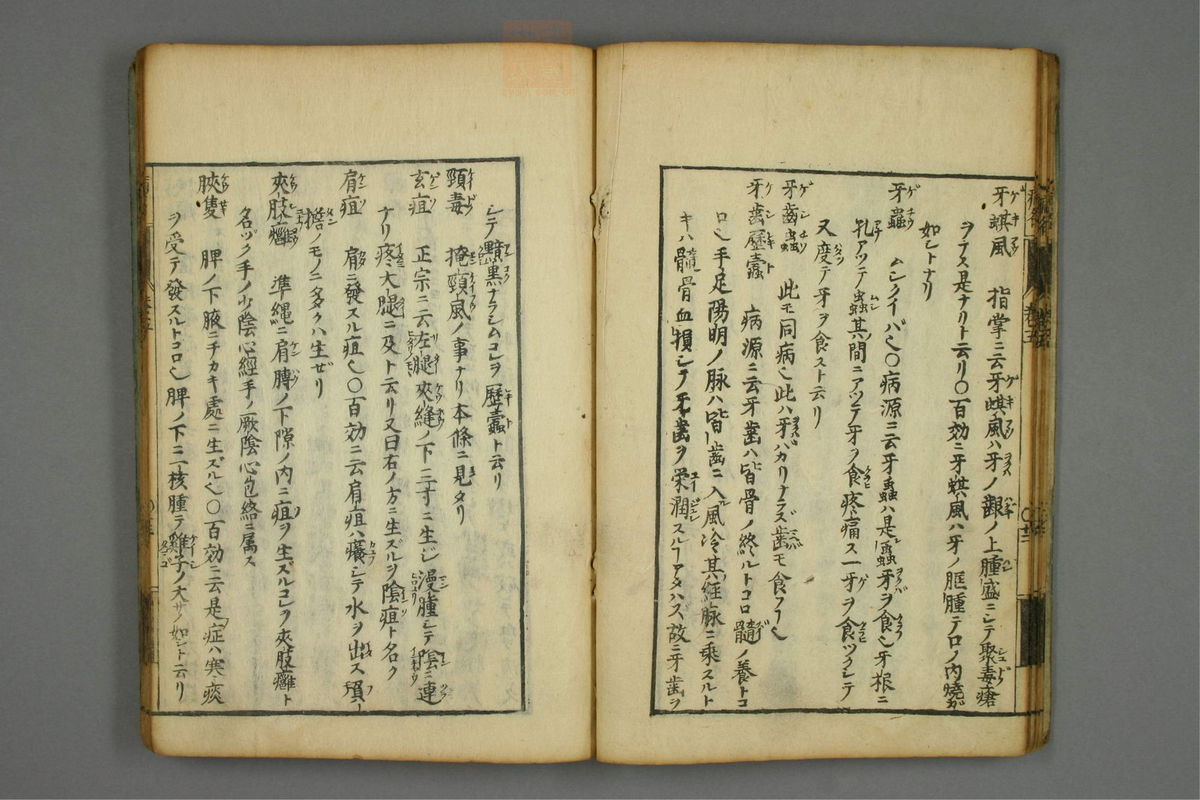 牙蜞風　指掌ニ云牙蜞風ハ牙ノ齦ノ上腫盛ニシテ聚毒瘡
ヲナス是ナリト云リ〇百効ニ牙蜞風ハ牙ノ腫テ口ノ内燒ガ
如シトナリ
牙蟲　ムシクイバ也〇病源ニ云牙蟲ハ是蟲牙ヲ食也牙根ニ
孔アツテ蟲其間ニアツテ牙ヲ食疼痛ス一牙ヲ食ツクシテ
又度テ牙ヲ食スト云リ
牙齒蟲　此モ同病也此ハ牙ハカリナラズ歯モ食フ也
牙齒歷蠹　病源ニ云牙歯ハ皆骨ノ終ルトコロ髓ノ養トコ
ロ也手足陽明ノ脉ハ皆歯ニ入風冷其經脉ニ乘スルト
キハ髓骨血損シテ牙歯ヲ栄潤スルヿアタハズ故ニ牙歯ヲ
シテ黯黒ナラシムコレヲ歷蠹ト云リ
頸毒　掩頸風ノ事ナリ本條ニ見タリ
玄疽　正宗ニ云左腿夾縫ノ下三寸ニ生ジ漫腫シテ陰ニ連
ナリ疼大腿ニ及ト云リ又曰右ノ方ニ生ズルヲ陰疽ト名ク
肩疽　肩ニ發スル疽也〇百効ニ云肩疽ハ癢シテ水ヲ出ス預
搭ノモノニ多クハ生ゼリ
夾肢癰　準繩ニ肩膊ノ下隙ノ内ニ疽ヲ生ズルコレヲ夾肢癰ト
名ヅク手ノ少陰心經手ノ厥陰心包絡ニ属ス
脥隻　脾ノ下腋ニチカキ處ニ生ズル也〇百効ニ云是症ハ寒痰
ヲ受テ發スルトコロ也脾ノ下ニ一核腫テ雞子ノ大サノ如シト云リ